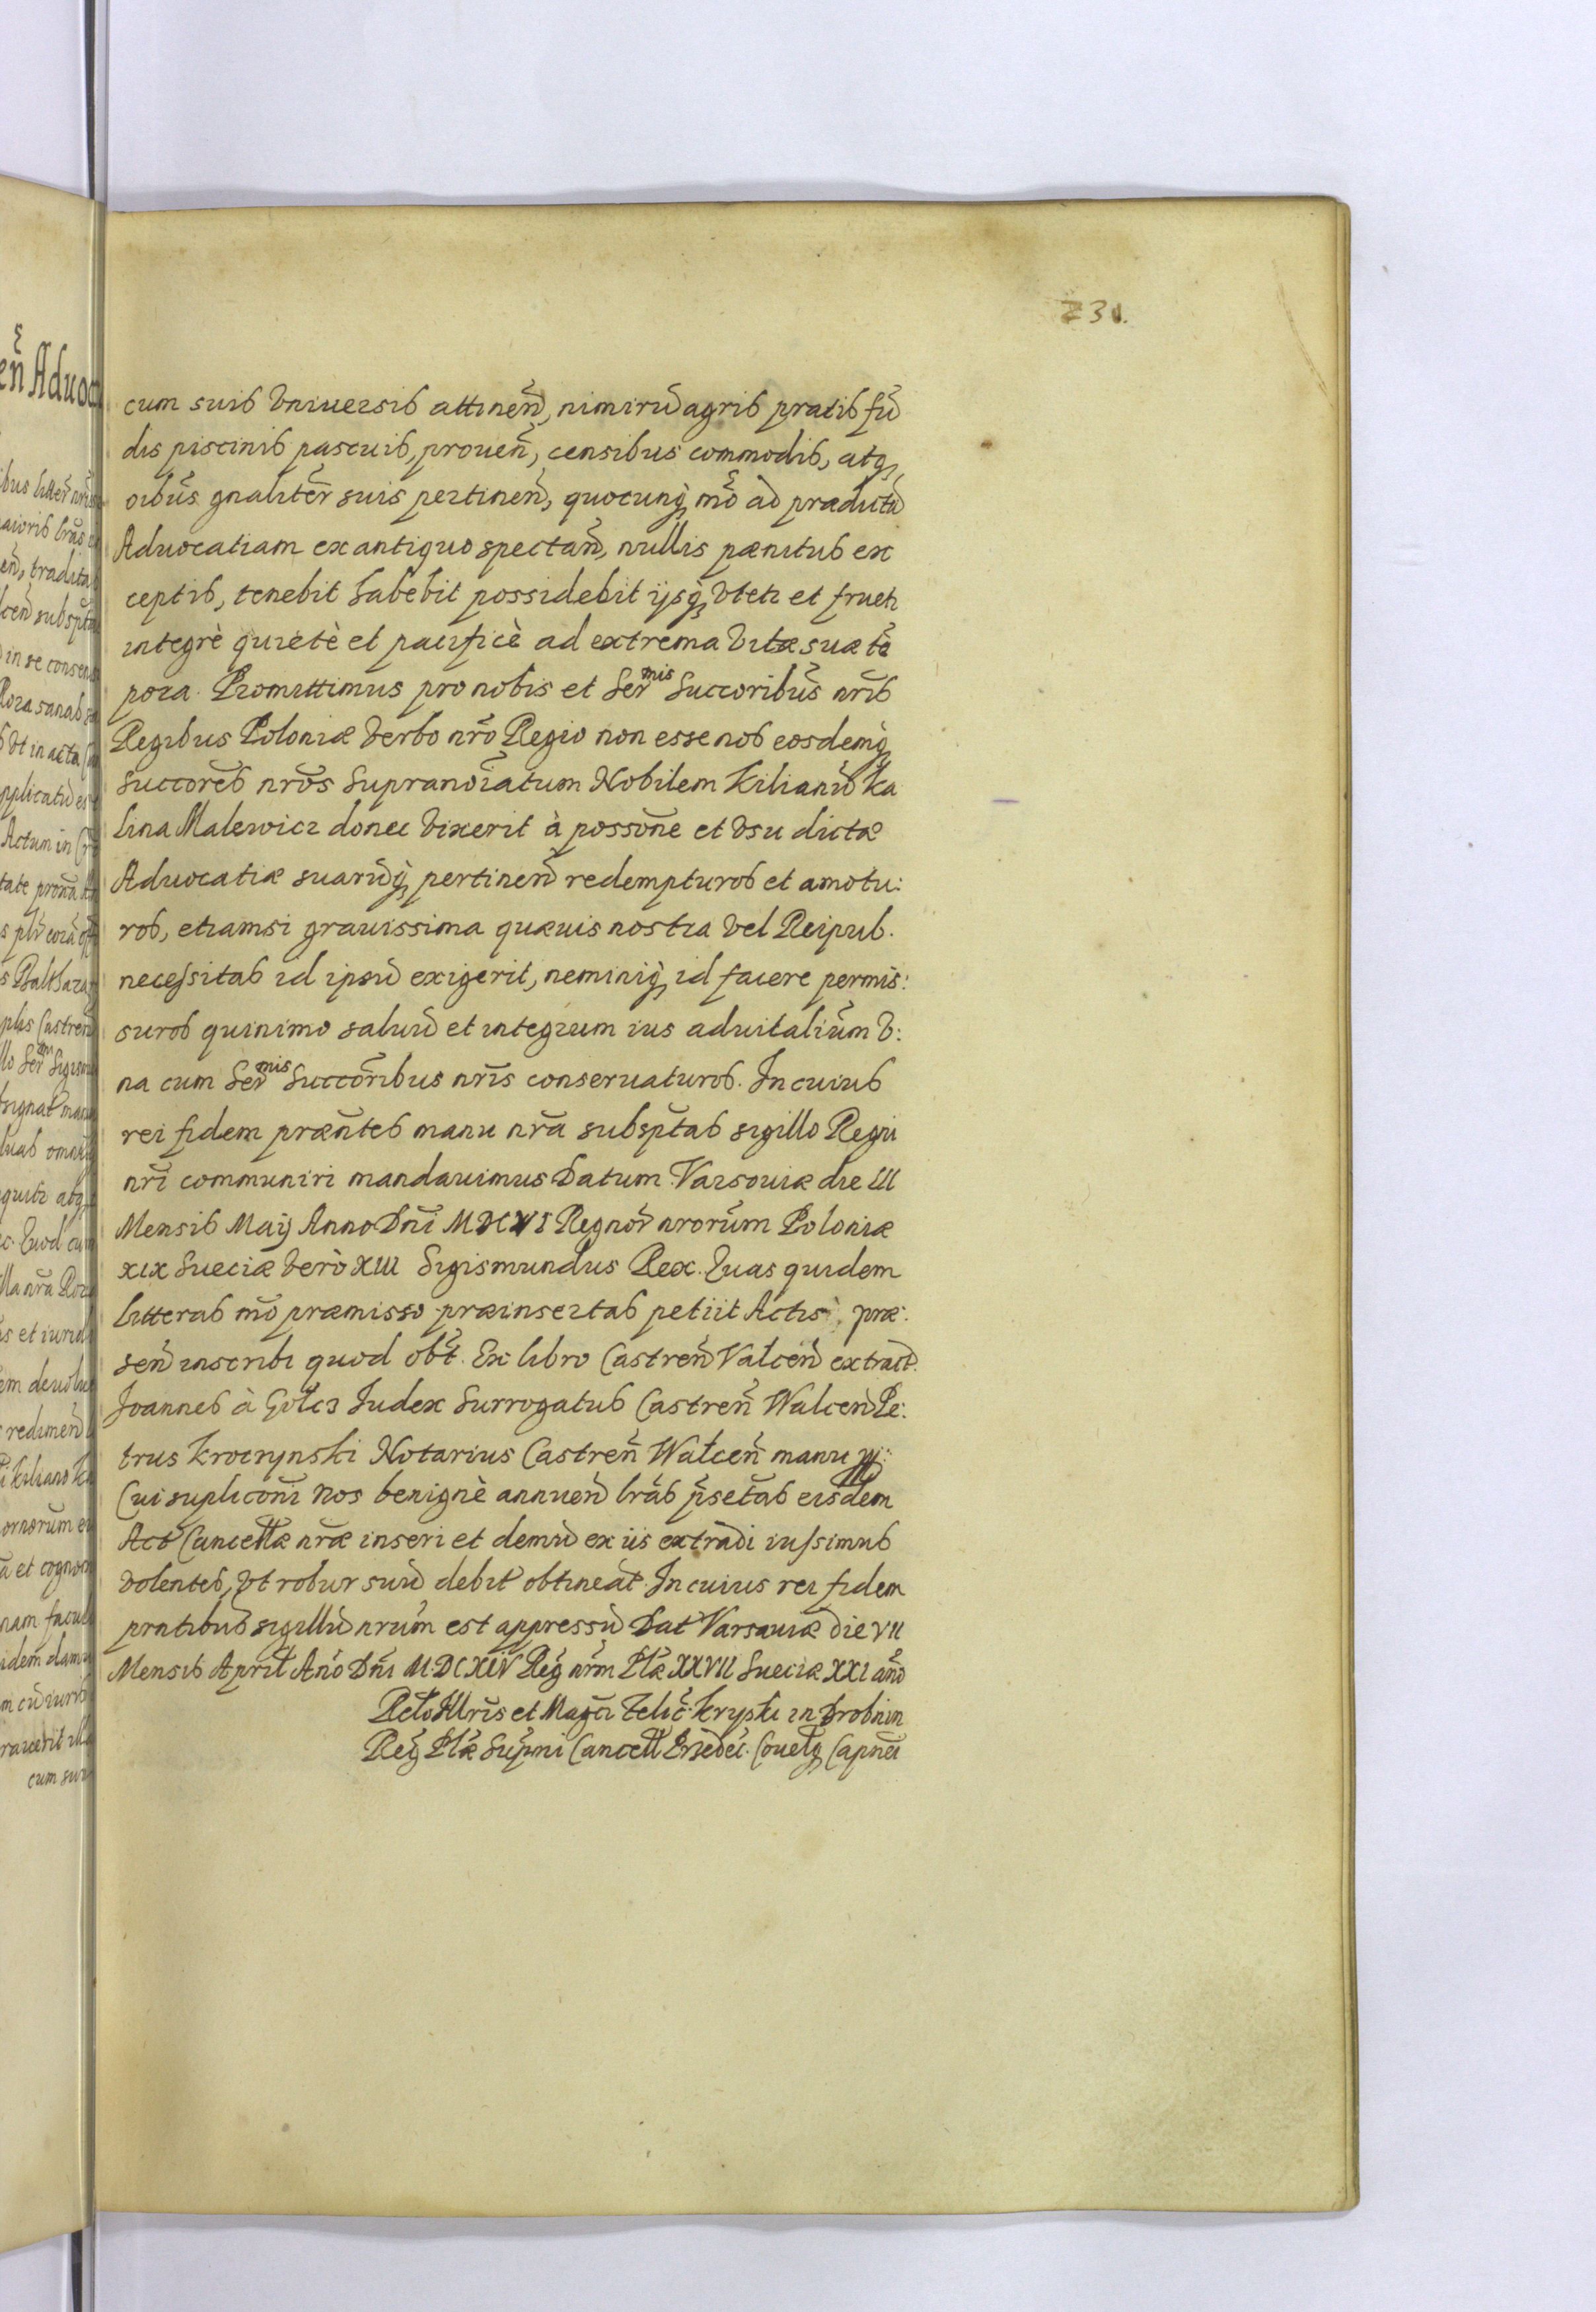 231.
cum suis Vniuersis attinen̄, nimirū agris pratis fū
dis piscinis pascuis, prouen̄, censibus commodis, atq3
oībus gnaliter suis pertinen̄, quocunq3 mō ad prædictā
Aduocatiam ex antiquo spectan̄, nullis pænitus ex
ceptis, tenebit habebit possidebit ijsq3 Vtetr et fruetr
integrè quietè et pacificè ad extrema Vitæ suæ tē
pora. Promittimus pro nobis et Sermis Succoribus nrīs
Regibus Poloniæ Verbo nrō Regio non esse nos eosdemq3
succores nrōs Supranoīatum Nobilem Kilianū Ka
lina Malewicz donec Vixerit à possōne et Vsu dictæ
Aduocatiæ suarūq3 pertinen̄ redempturos et amotu:
ros, etiamsi grauissima quæuis nostra Vel Reipub.
necessitas id ipsū exigerit, neminiq3 id facere permis:
suros quinimo saluū et integrum ius aduitalium V:
na cum Sermis Succoribus nrīs conseruaturos. In cuius
rei fidem præntes manu nrā subsptas sigillo Regni
nrī communiri mandauimus Datum Varsouiæ die III
Mensis Maij Anno Dnī MDCVI Regnor nrorum Poloniæ
XIX Sueciæ Verò XIII Sigismundus Rex. Quas quidem
litteras mō præmisso præinsertas petiit Actis præ:
sen̄ inscribi quod obt. Ex libro Castren̄ Valcen̄ extract.
Joannes à Golcz Iudex Surrogatus Castren̄ Walcen̄ Pe:
trus Kroczynski Notarius Castren̄ Wałcen̄ manu
Cui supliconi Nos benignè annuen̄ lrās insetas eisdem
Act Cancellæ nræ inseri et demū ex iis extradi iussimus
Volentes, Vt robur suū debit obtineat. In cuius rei fidem
prntibus sigillū nrum est appressū Dat Varsauiæ die VII
Mensis April Anō Dnī M.DCXIV Reg nrm Plæ XXVII Sueciæ XXI anō
Relō Illris et Magci Felic. Kryski in Drobnin
Reg Plæ Supmi Cancell